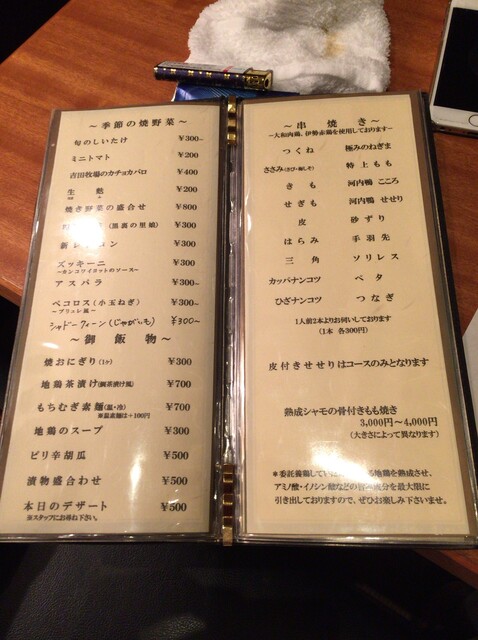 ～季節の焼野菜～
旬のしいたけ ¥300~
ミニトマト ¥200
吉田牧場のカチョカバロ ¥400
生麩 ¥200
焼き野菜の盛合せ ¥800
¥300
新レンコン ¥300
ズッキーニ ¥300
アスパラ ¥300~
ペコロス(小玉ねぎ) ¥300~
～ブリュレ風～
シャドークィーン(じゃがいも) ¥300~
～御飯物～
焼おにぎり(1ヶ) ¥300
地鶏茶漬け(鯛茶漬け風) ¥700
もちむぎ素麺(温・冷) ¥700
※温素麺は+100円
地鶏のスープ ¥300
ピリ辛胡瓜 ¥500
漬物盛合わせ ¥500
本日のデザート ¥500
※スタッフにお尋ね下さい。
～串焼き～
～大和肉鶏、伊勢赤鶏を使用しております～
つくね 極みのねぎま
ささみ(さび・梅しそ) 特上もも
きも 河内鴨 こころ
せぎも 河内鴨 せせり
皮 砂ずり
はらみ 手羽先
三角 ソリレス
カッパナンコツ ペタ
ひざナンコツ つなぎ
1人前2本よりお伺いしております
(1本 各300円)
皮付きせせりはコースのみとなります
熟成シャモの骨付きもも焼き
3,000円～4,000円
(大きさによって異なります)
*委託養鶏してい る地鶏を熟成させ、
アミノ酸・イノシン酸などの 成分を最大限に
引き出しておりますので、ぜひお楽しみ下さいませ。